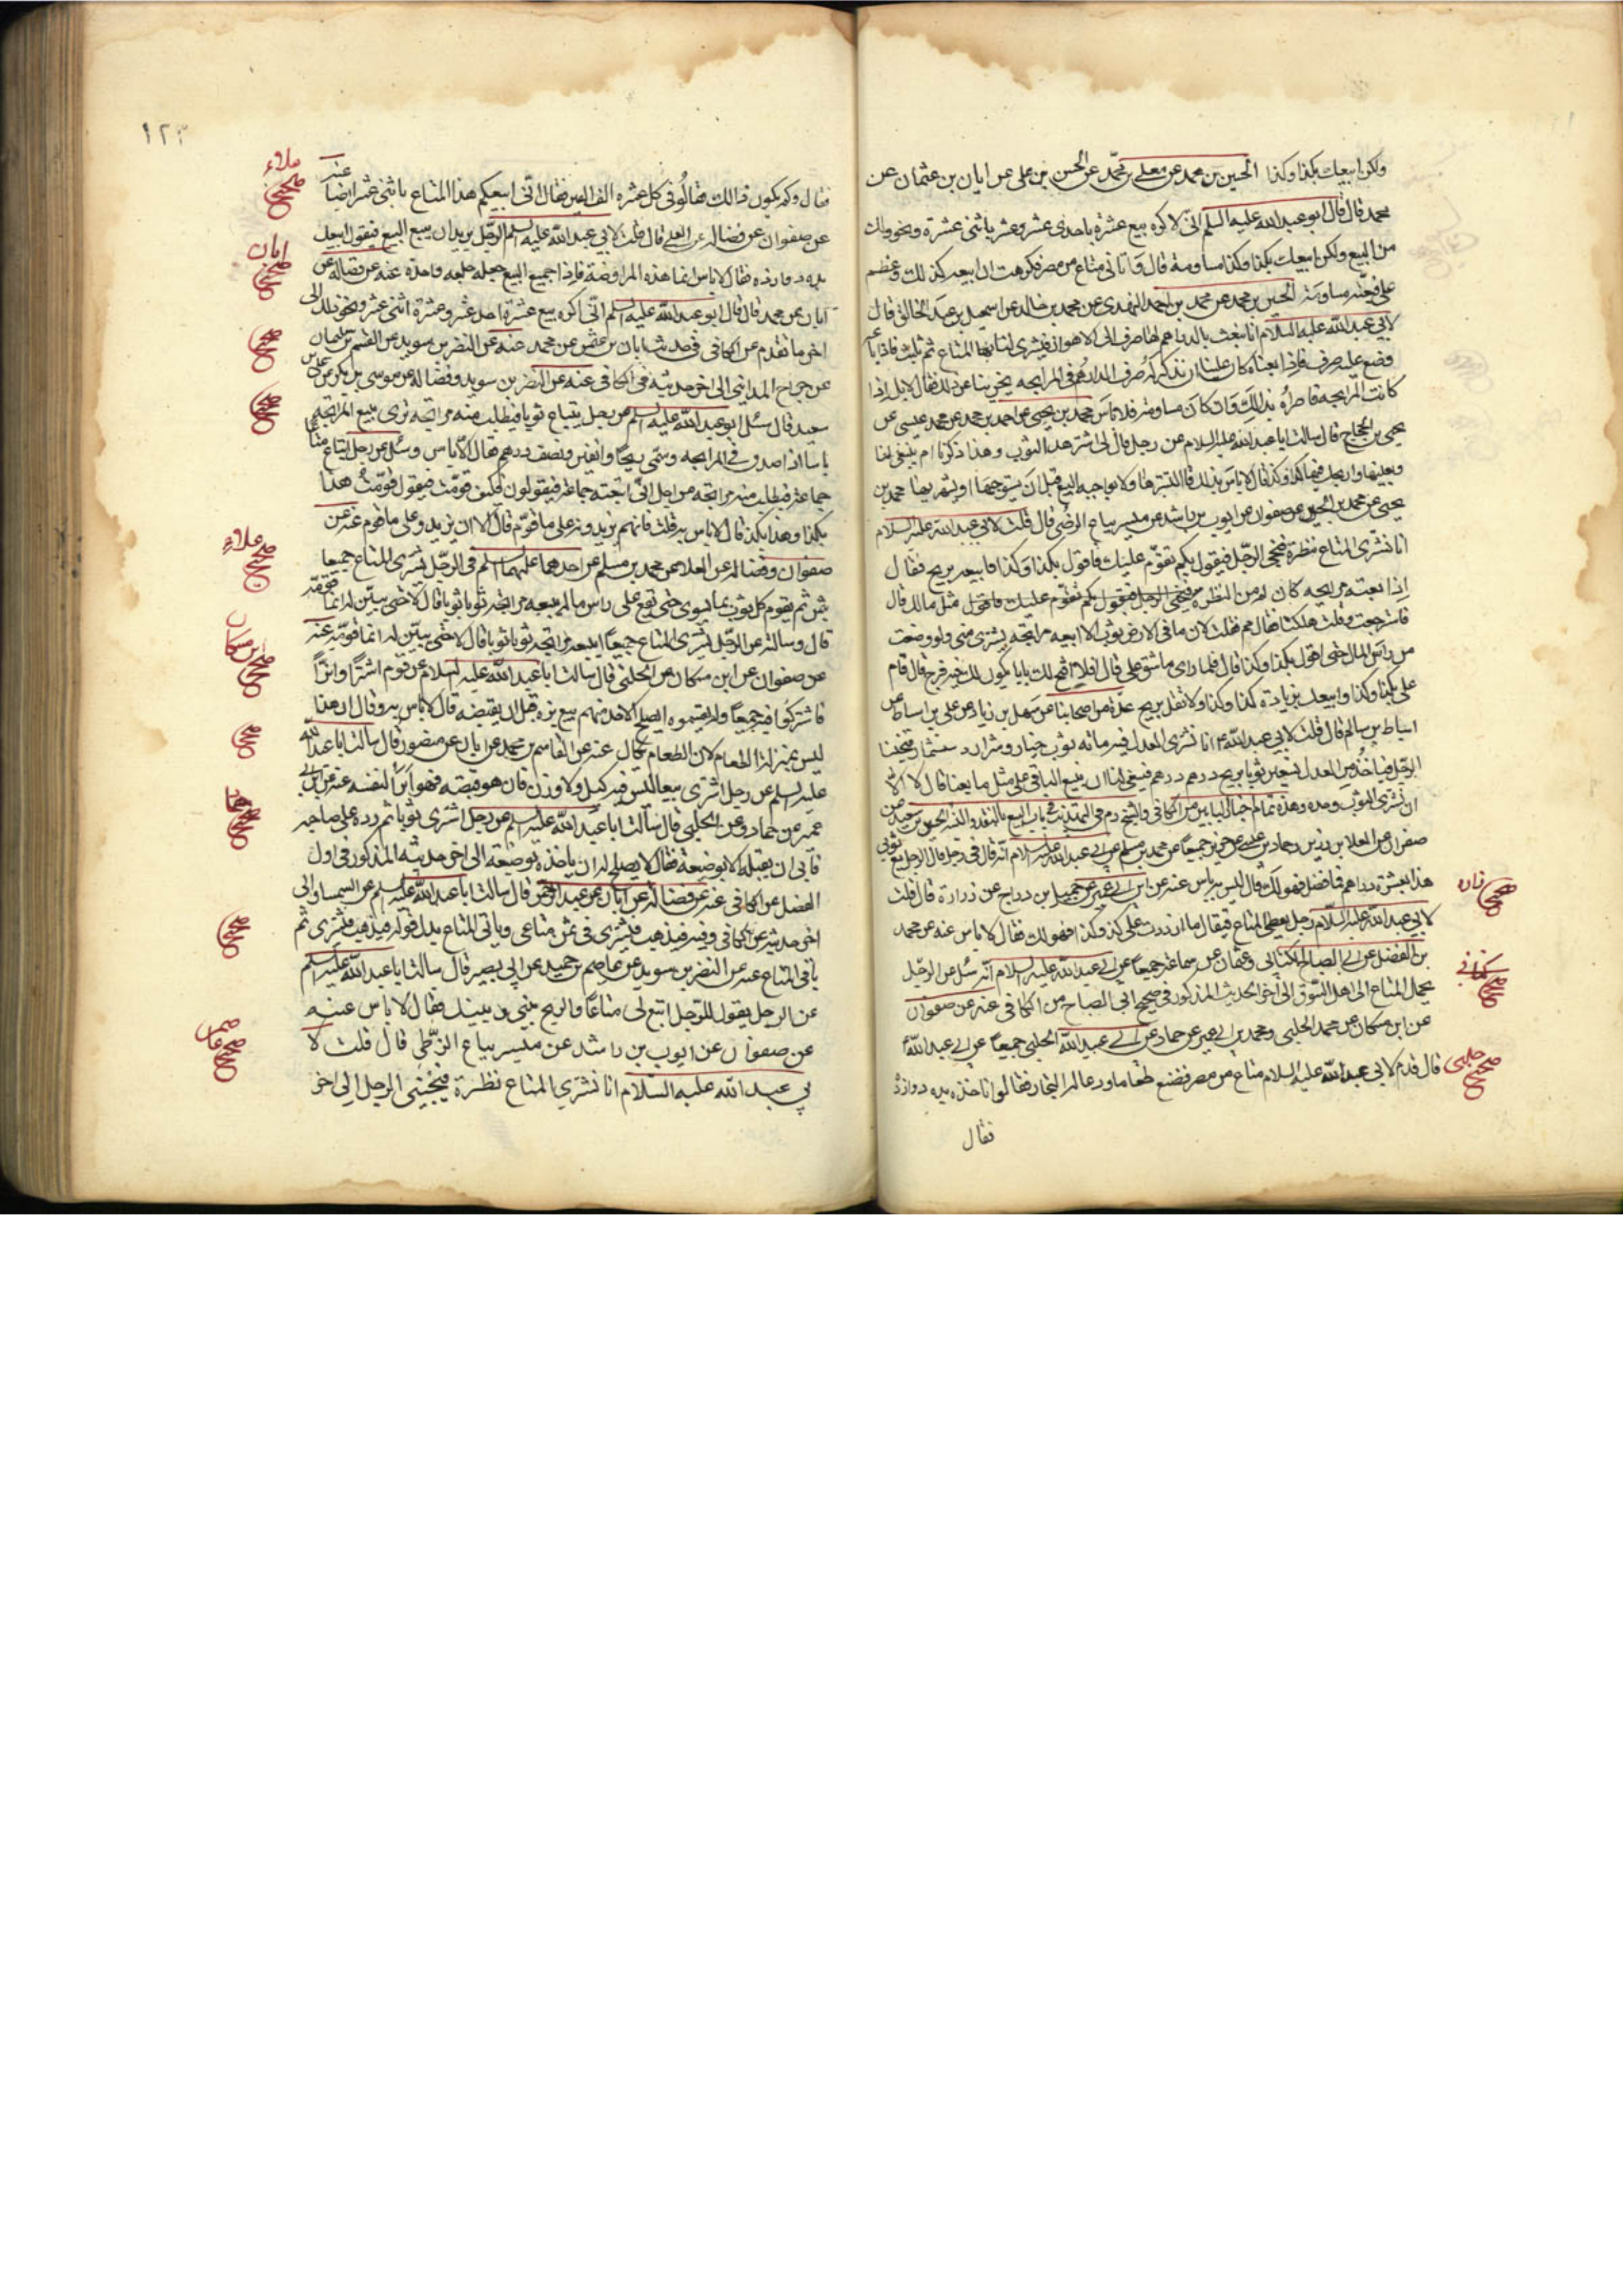 ولكن ابيعك بكذا وكذا الحسين بن محمد عن معلى بن محمد عن الحسن بن علي عن ابان بن عثمان عن
محمد قال قال ابو عبد الله عليه السلم اني لاكره بيع عشرة باحدى عشر وعشرة باثنى عشرة ونحو ذلك
من البيع ولكن ابيعك بكذا وكذا مساومة قال واتاني متاع من مصر فكرهت ان ابيعه كذلك وعظم
علي فبعته مساومة الحسين بن محمد عن محمد بن احمد النهدي عن محمد بن خالد عن اسمعيل بن عبد الخالق قال
لابي عبد الله عليه السلام انا نبعث بالدراهم لها صرف الى الاهواز فيشترى لنا بها المتاع ثم نلبث فاذا باعه
وضع عليه صرف فاذا بعناه كان علينا ان نذكر له صرف الدراهم في المرابحة يجزينا عن ذلك فقال لا بل اذا
كانت المرابحة فاخبره بذلك وان كان مساومة فلا باس محمد بن يحيى عن احمد بن محمد عن محمد بن عيسى عن
يحيى بن الحجاج قال سالت ابا عبد الله عليه السلام عن رجل قال لي اشتر هذا الثوب وهذه
وبعنيها واربحك فيها كذا وكذا قال لا باس بذلك قال ليشترها ولا يواجبه البيع قبل ان يستوجبها او يشتريها محمد بن
يحيى عن محمد بن الحسين عن صفوان عن ايوب بن راشد عن ميسر بياع الزطي قال قلت لابي عبد الله عليه السلام
انا نشترى المتاع نظرة فيجئ الرجل فيقول بكم تقوم عليك فاقول بكذا وكذا فابيعه بربح فقال
اذا بعته مرابحة كان له من النظرة
فاسترجعت وقلت هلكنا فقال مم فقلت لان ما في الارض ثوب الا ابيعه مرابحة يشترى مني ولو وضعت
من راس المال حتى اقول بكذا وكذا قال فلما راى ما شق علي قال افلا افتح لك بابا يكون لك فيه فرج قال قام
علي بكذا وكذا وابيعك بزيادة كذا وكذا ولا تقل بربح عدة من اصحابنا عن سهل بن زياد عن علي بن اسباط عن
اسباط بن سالم قال قلت لابي عبد الله ع انا نشترى العدل فيه مائة ثوب خيار وشرار دستشمار فيجيئنا
الرجل فياخذ من العدل تسعين ثوبا بربح درهم درهم فينبغي لنا ان نبيع الباقي على مثل ما بعنا قال لا الا
ان نشترى الثوب وحده
صفوان عن العلا بن رزين وحماد بن عيسى عن حريز جميعا عن محمد بن مسلم عن ابي عبد الله عليه السلام انه قال في رجل قال لرجل بع ثوبي
هذا بعشرة دراهم فما فضل فهو لك قال ليس به باس عنه عن ابن ابي عمير عن جميل بن دراج عن زرارة قال قلت
لابي عبد الله عليه السلام رجل يعطى المتاع فيقال ما ازددت على كذا وكذا فهو لك فقال لا باس عنه عن محمد
بن الفضل عن ابي الصباح الكناني وعثمان عن سماعة جميعا عن ابي عبد الله عليه السلام انه سئل عن الرجل
يحمل المتاع الى اهل السوق الى اخر الحديث المذكور في صحيح ابي الصباح من الكافي عنه عن صفوان
عن ابن مسكان عن محمد الحلبي ومحمد بن ابي عمير عن حماد عن عبيد الله الحلبي جميعا عن ابي عبد الله ع
قال قدم لابي عبد الله عليه السلام متاع من مصر فصنع طعاما ودعا له التجار فقالوا انا ناخذه بده دوازده
فقال
صحيح زراره
صحيح كناني
صحيح حلبي
١٢٣
فقال وكم يكون ذلك فقالوا في كل عشرة الف الفين فقال اني ابيعكم هذا المتاع باثني عشر ايضا عنه
عن صفوان عن فضالة عن العلا قال قلت لابي عبد الله عليه السلم الرجل يريد ان يبيع البيع فيقول ابيعك
بده دوازده فقال لا باس انما هذه المراوضة فاذا جمع البيع جعله جملة واحدة عنه عن فضالة عن
ابان عن محمد قال قال ابو عبد الله عليه السلم اني اكره بيع عشرة احد عشر وعشرة اثني عشر ونحو ذلك الى
اخر ما تقدم عن الكافي في حديث ابان بن عثمن عن محمد عنه عن النضر بن سويد عن القسم بن سليمان
عن جراح المدايني الى اخر حديثه في الكافي عنه عن النضر بن سويد وفضالة عن موسى بن بكر عن علي بن
سعيد قال سئل ابو عبد الله عليه السلم عن رجل يبتاع ثوبا فيطلب منه مرابحة ترى ببيع المرابحة
باسا اذا صدق في المرابحة وسمى ربحا دانقين ونصف درهم فقال لا باس وسئل عن رجل ابتاع متاعا
جماعة فيطلب منه مرابحة من اجل اني ابتعته جماعة فيقولون فكيف قومت فيقول قومت هذا
بكذا وهذا بكذا قال لا باس به قلت فانهم يزيدونه على ما قوم قال لا ان يزيدوه على ما قوم عنه عن
صفوان وفضالة عن العلا عن محمد بن مسلم عن احدهما عليهما السلم في الرجل يشترى المتاع جميعا
بثمن ثم يقوم كل ثوب بما يسوى حتى يقع على راس ماله يبيعه مرابحة ثوبا ثوبا قال لا حتى يبين له انما قومه
قال وسالته عن الرجل يشترى المتاع جميعا ايبيعه مرابحة ثوبا ثوبا قال لا حتى يبين له انما قومه عنه
عن صفوان عن ابن مسكان عن الحلبي قال سالت ابا عبد الله عليه السلام عن قوم اشتروا بزا
فاشتركوا فيه جميعا ولم يقتسموه ايصلح لاحد منهم بيع بزه قبل ان يقبضه قال لا باس به وقال ان هذا
ليس بمنزلة الطعام لان الطعام يكال عنه عن القاسم بن محمد عن ابان عن منصور قال سالت ابا عبد الله
عليه السلم عن رجل اشترى بيعا ليس فيه كيل ولا وزن فان هو قبضه فهو ابرا لنفسه عنه عن ابن ابي
عمير عن حماد عن الحلبي قال سالت ابا عبد الله عليه السلم عن رجل اشترى ثوبا ثم رده على صاحبه
فابى ان يقبله الا بوضيعة فقال لا يصلح له ان ياخذه بوضيعة الى اخر حديثه المذكور في اول
الفصل عن الكافي عنه عن فضالة عن ابان عن عبد الرحمن قال سالت ابا عبد الله عليه السلم عن السمسار الى
اخر حديثه عن الكافي وفيه فيذهب فيشترى
باقي المتاع عنه عن النضر بن سويد عن عاصم بن حميد عن ابي بصير قال سالت ابا عبد الله عليه السلم
عن الرجل يقول للرجل ابتع لي متاعا والربح بيني وبينك فقال لا باس عنه
عن صفوان عن ايوب بن راشد عن ميسر بياع الزطي قال قلت لا
بي عبد الله عليه السلام انا نشتري المتاع نظرة فيجيئني الرجل الى اخر
صحيح علاء
صحيح ابان
صحيح
صحيح
صحيح علاء
صحيح بن مسكان
صحيح
صحيح
صحيح